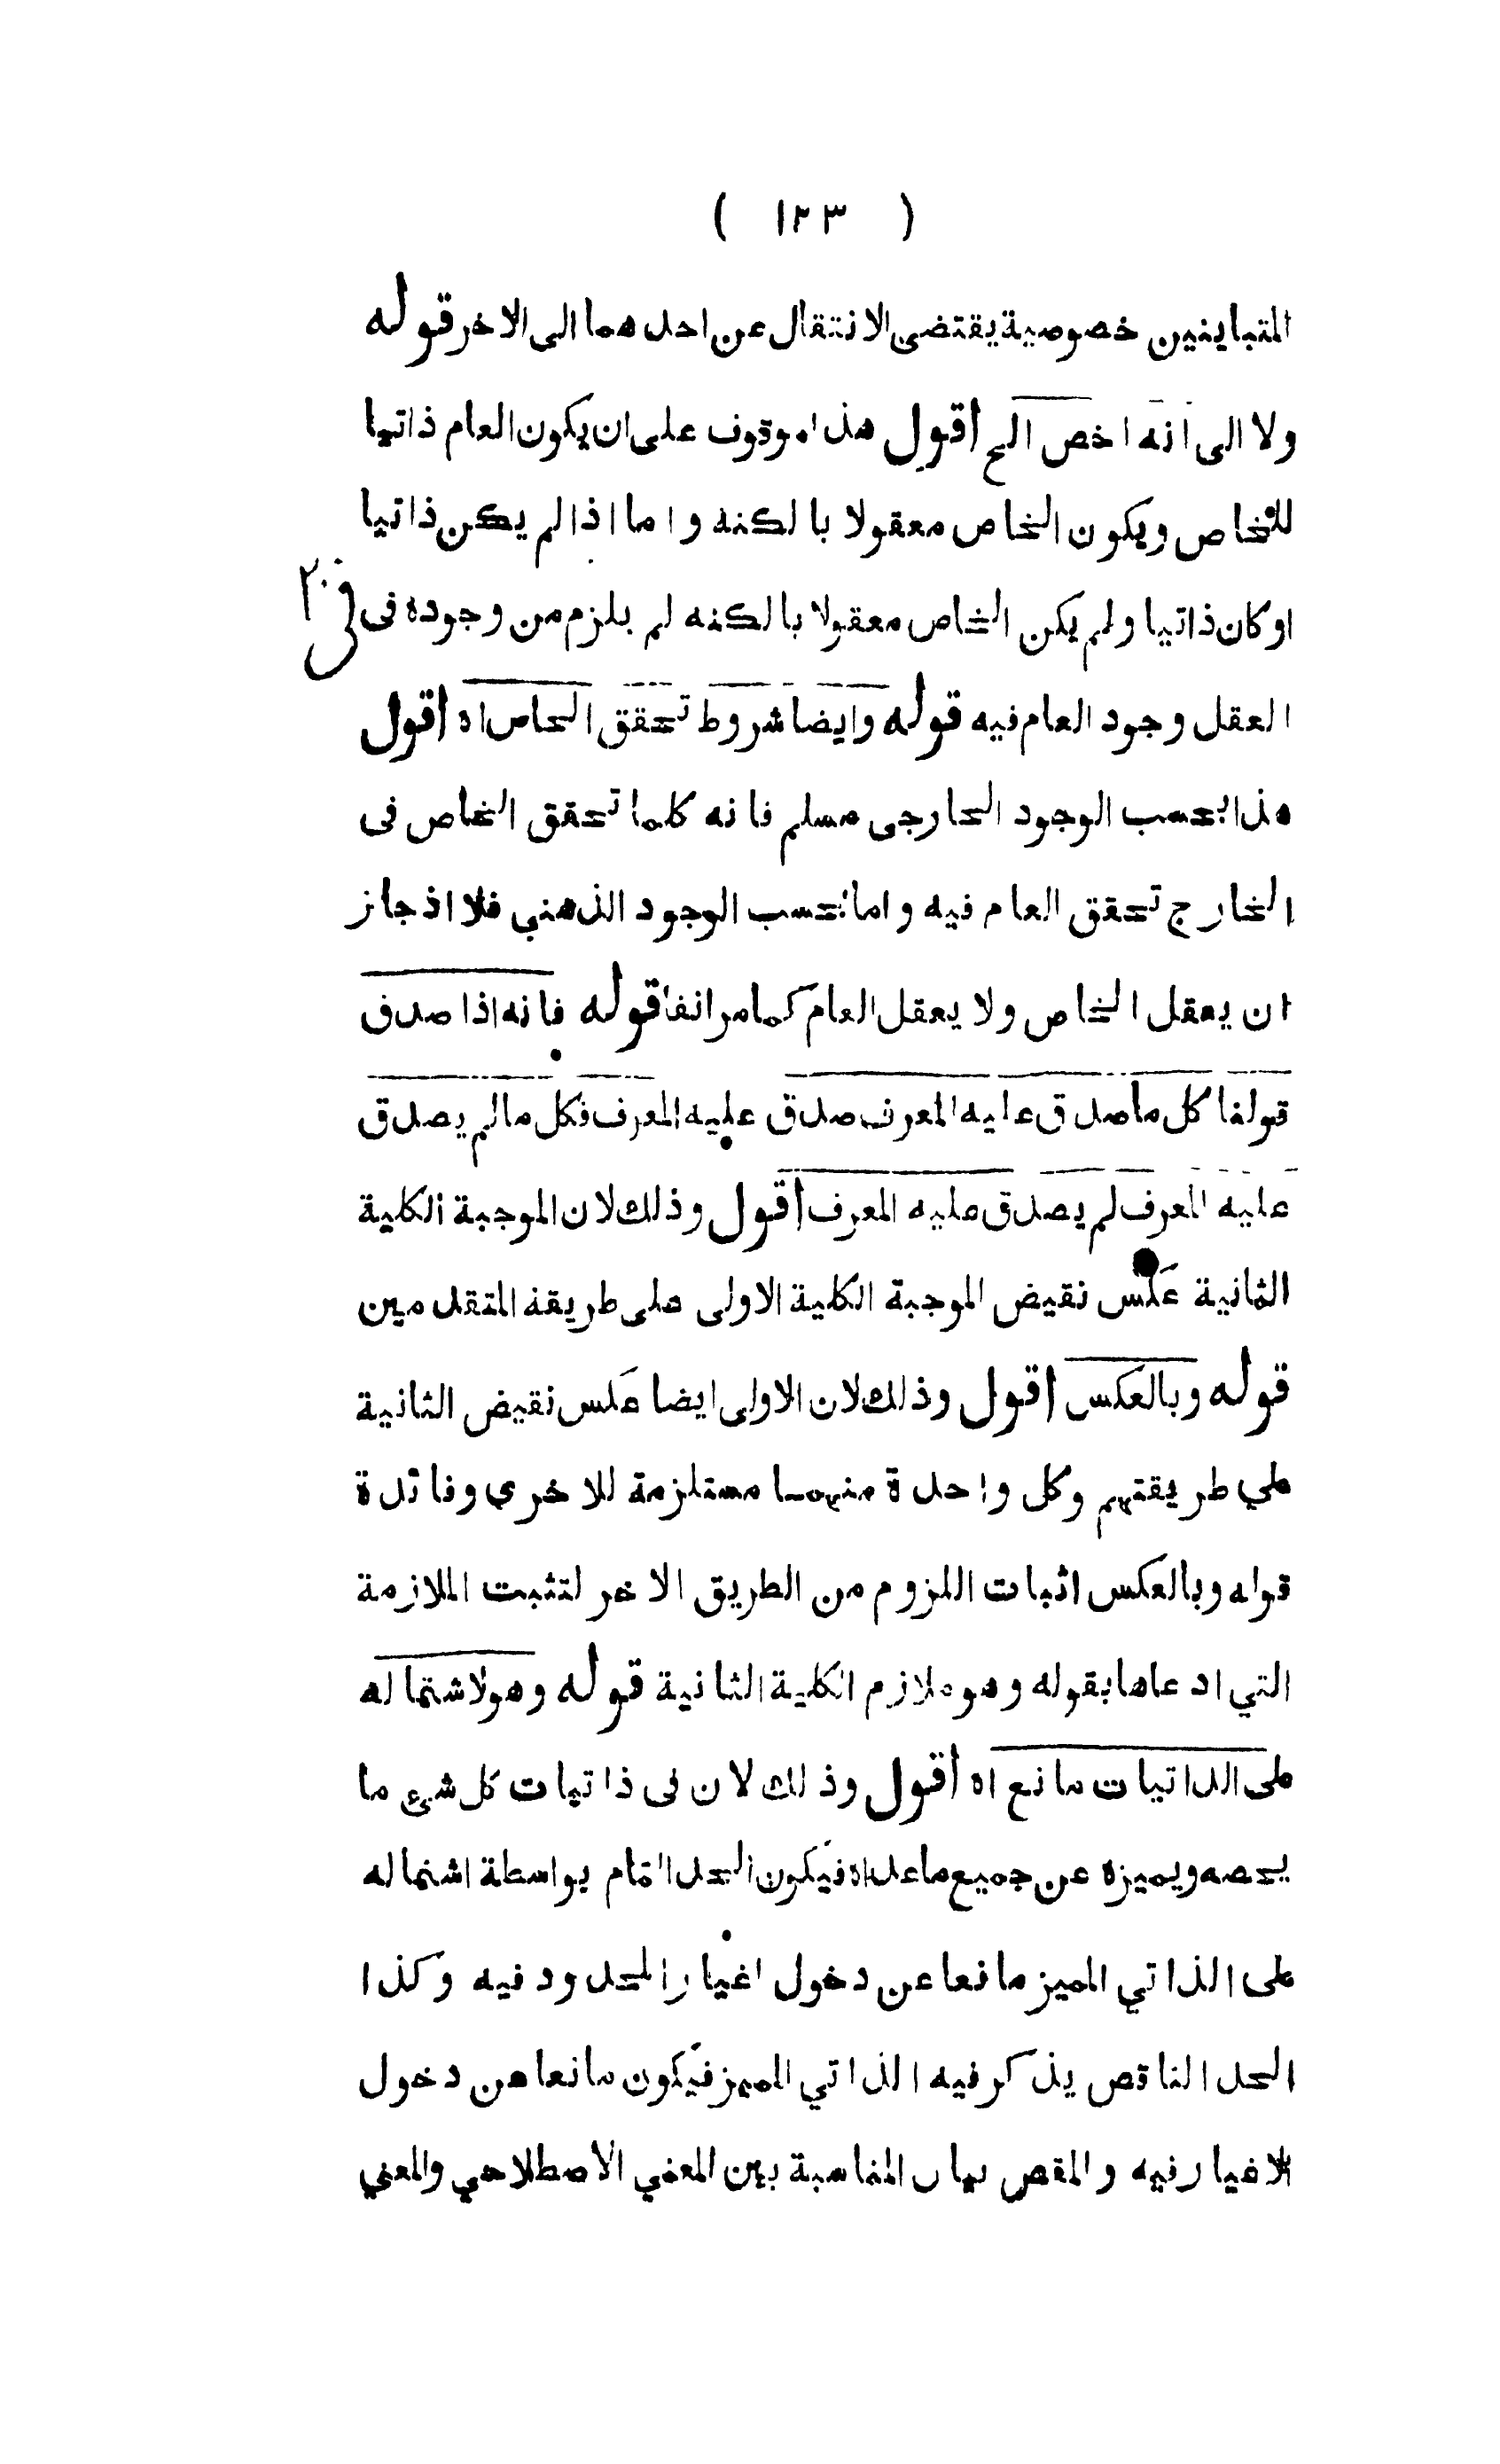 ( ١٢٣ )
المتباينين خصوصية يقتضى الانتقال عن احدهما الى الاخر قوله
ولا الى انه اخص الخ اقول هذا موقوف على ان يكون العام ذاتيا
للخاص ويكون الخاص معقولا بالكنه واما اذا لم يكن ذاتيا
اوكان ذاتيا ولم يكن الخاص معقولا بالكنه لم يلزم من وجوده فى
العقل وجود العام فيه قوله وايضا شروط تحقق الخاص اه اقول
هذا بحسب الوجود الخارجى مسلم فانه كلما تحقق الخاص فى
الخارج تحقق العام فيه واما بحسب الوجود الذهني فلا اذ جاز
ان يعقل الخاص ولا يعقل العام كمامر انفا قوله فانه اذا صدق
قولنا كل ما صدق عليه المعرف صدق عليه المعرف فكل مالم يصدق
عليه المعرف لم يصدق عليه المعرف اقول وذلك لان الموجبة الكلية
الثانية عكس نقيض الموجبة الكلية الاولى على طريقة المتقدمين
قوله وبالعكس اقول وذلك لان الاولى ايضا عكس نقيض الثانية
على طريقتهم وكل واحدة منهما مستلزمة للاخرى وفائدة
قوله وبالعكس اثبات اللزوم من الطريق الاخر لتثبت الملازمة
التي ادعاها بقوله وهو ملازم الكلية الثانية قوله وهو لاشتماله
على الذاتيات مانع اه اقول وذلك لان فى ذاتيات كل شيء ما
يخصه ويميزه عن جميع ماعداه فيكون الحد التام بواسطة اشتماله
على الذاتي المميز مانعا عن دخول اغيار المحدود فيه وكذا
الحد الناقص يذكر فيه الذاتي المميز فيكون مانعا عن دخول
الاغيار فيه والمقص بيان المناسبة بين المعني الاصطلاحي والمعني